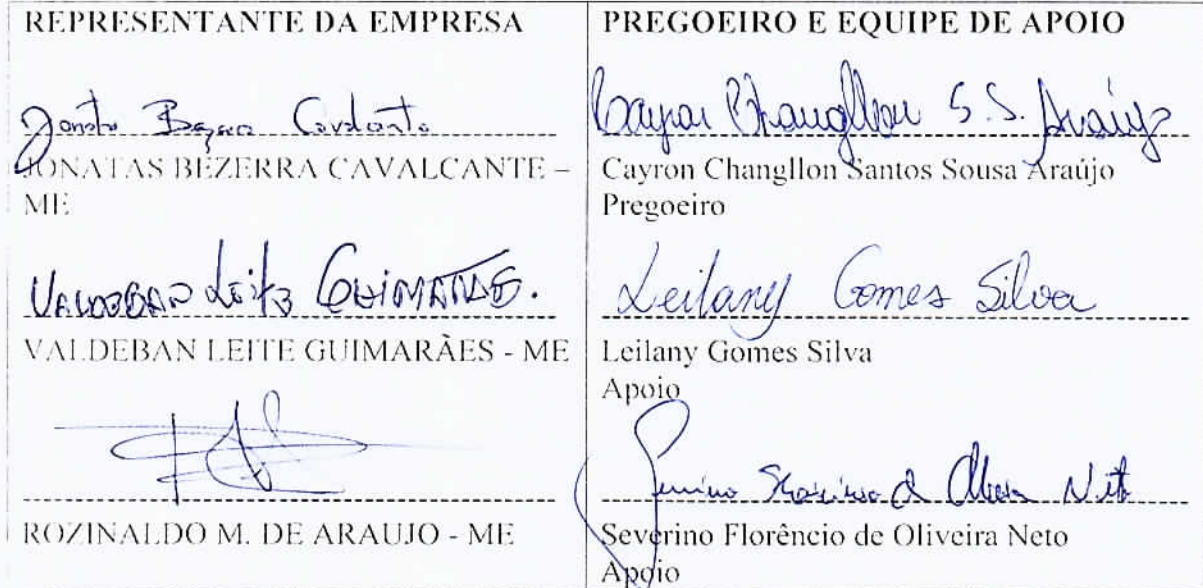 REPRESENTANTE DA EMPRESA
Bezerra Cavalcante
JONATAS BEZERRA CAVALCANTE –
ME
VALDEBAN Leite GUIMARÃES.
VALDEBAN LEITE GUIMARÃES - ME
ROZINALDO M. DE ARAUJO - ME
PREGOEIRO E EQUIPE DE APOIO
Cayron Changllon S. S. Araújo
Cayron Changllon Santos Sousa Araújo
Pregoeiro
Leilany Gomes Silva
Leilany Gomes Silva
Apoio
Severino Florêncio de Oliveira Neto
Severino Florêncio de Oliveira Neto
Apoio